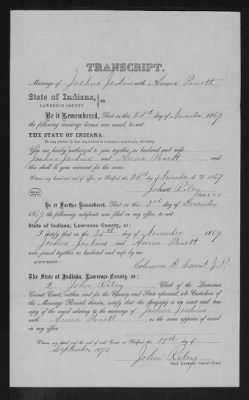 TRANSCRIPT.
Marriage of Joshua Jenkins with Anna Pruett
State of Indiana,
LAWRENCE COUNTY. ss:
Be it Remembered, That on this 26th day of November 1869
the following marriage license was issued, to-wit:
THE STATE OF INDIANA.
To any person by law empowered to solemnize marriages, Greeting:
You are hereby authorized to join together, as husband and wife,
Joshua Jenkins and Anna Pruett and
this shall be your warrant for the same.
Witness my hand and seal of office at Bedford, this 26th of November A. D. 1869
John Riley
Be it Further Remembered, That on the day of December
1869 the following certificate was filed in my office, to-wit:
State of Indiana, Lawrence County, ss:
I certify that on the 27th day of November 1869
Joshua Jenkins and Anna Pruett
were joined together as husband and wife by me
ATTEST:
J.P.
The State of Indiana, Lawrence County, ss:
I, John Riley Clerk of the Lawrence
Circuit Court, within and for the County and State aforesaid, and Custodian of
the Marriage Records thereof, certify that the foregoing is an exact and true
copy of the record relating to the marriage of Joshua Jenkins
with Anna Pruett as the same appears of record
in my office.
Witness my hand and the seal of said Court at Bedford, this 19th day of
September 1872
John Riley
Clerk Lawrence Circuit Court.